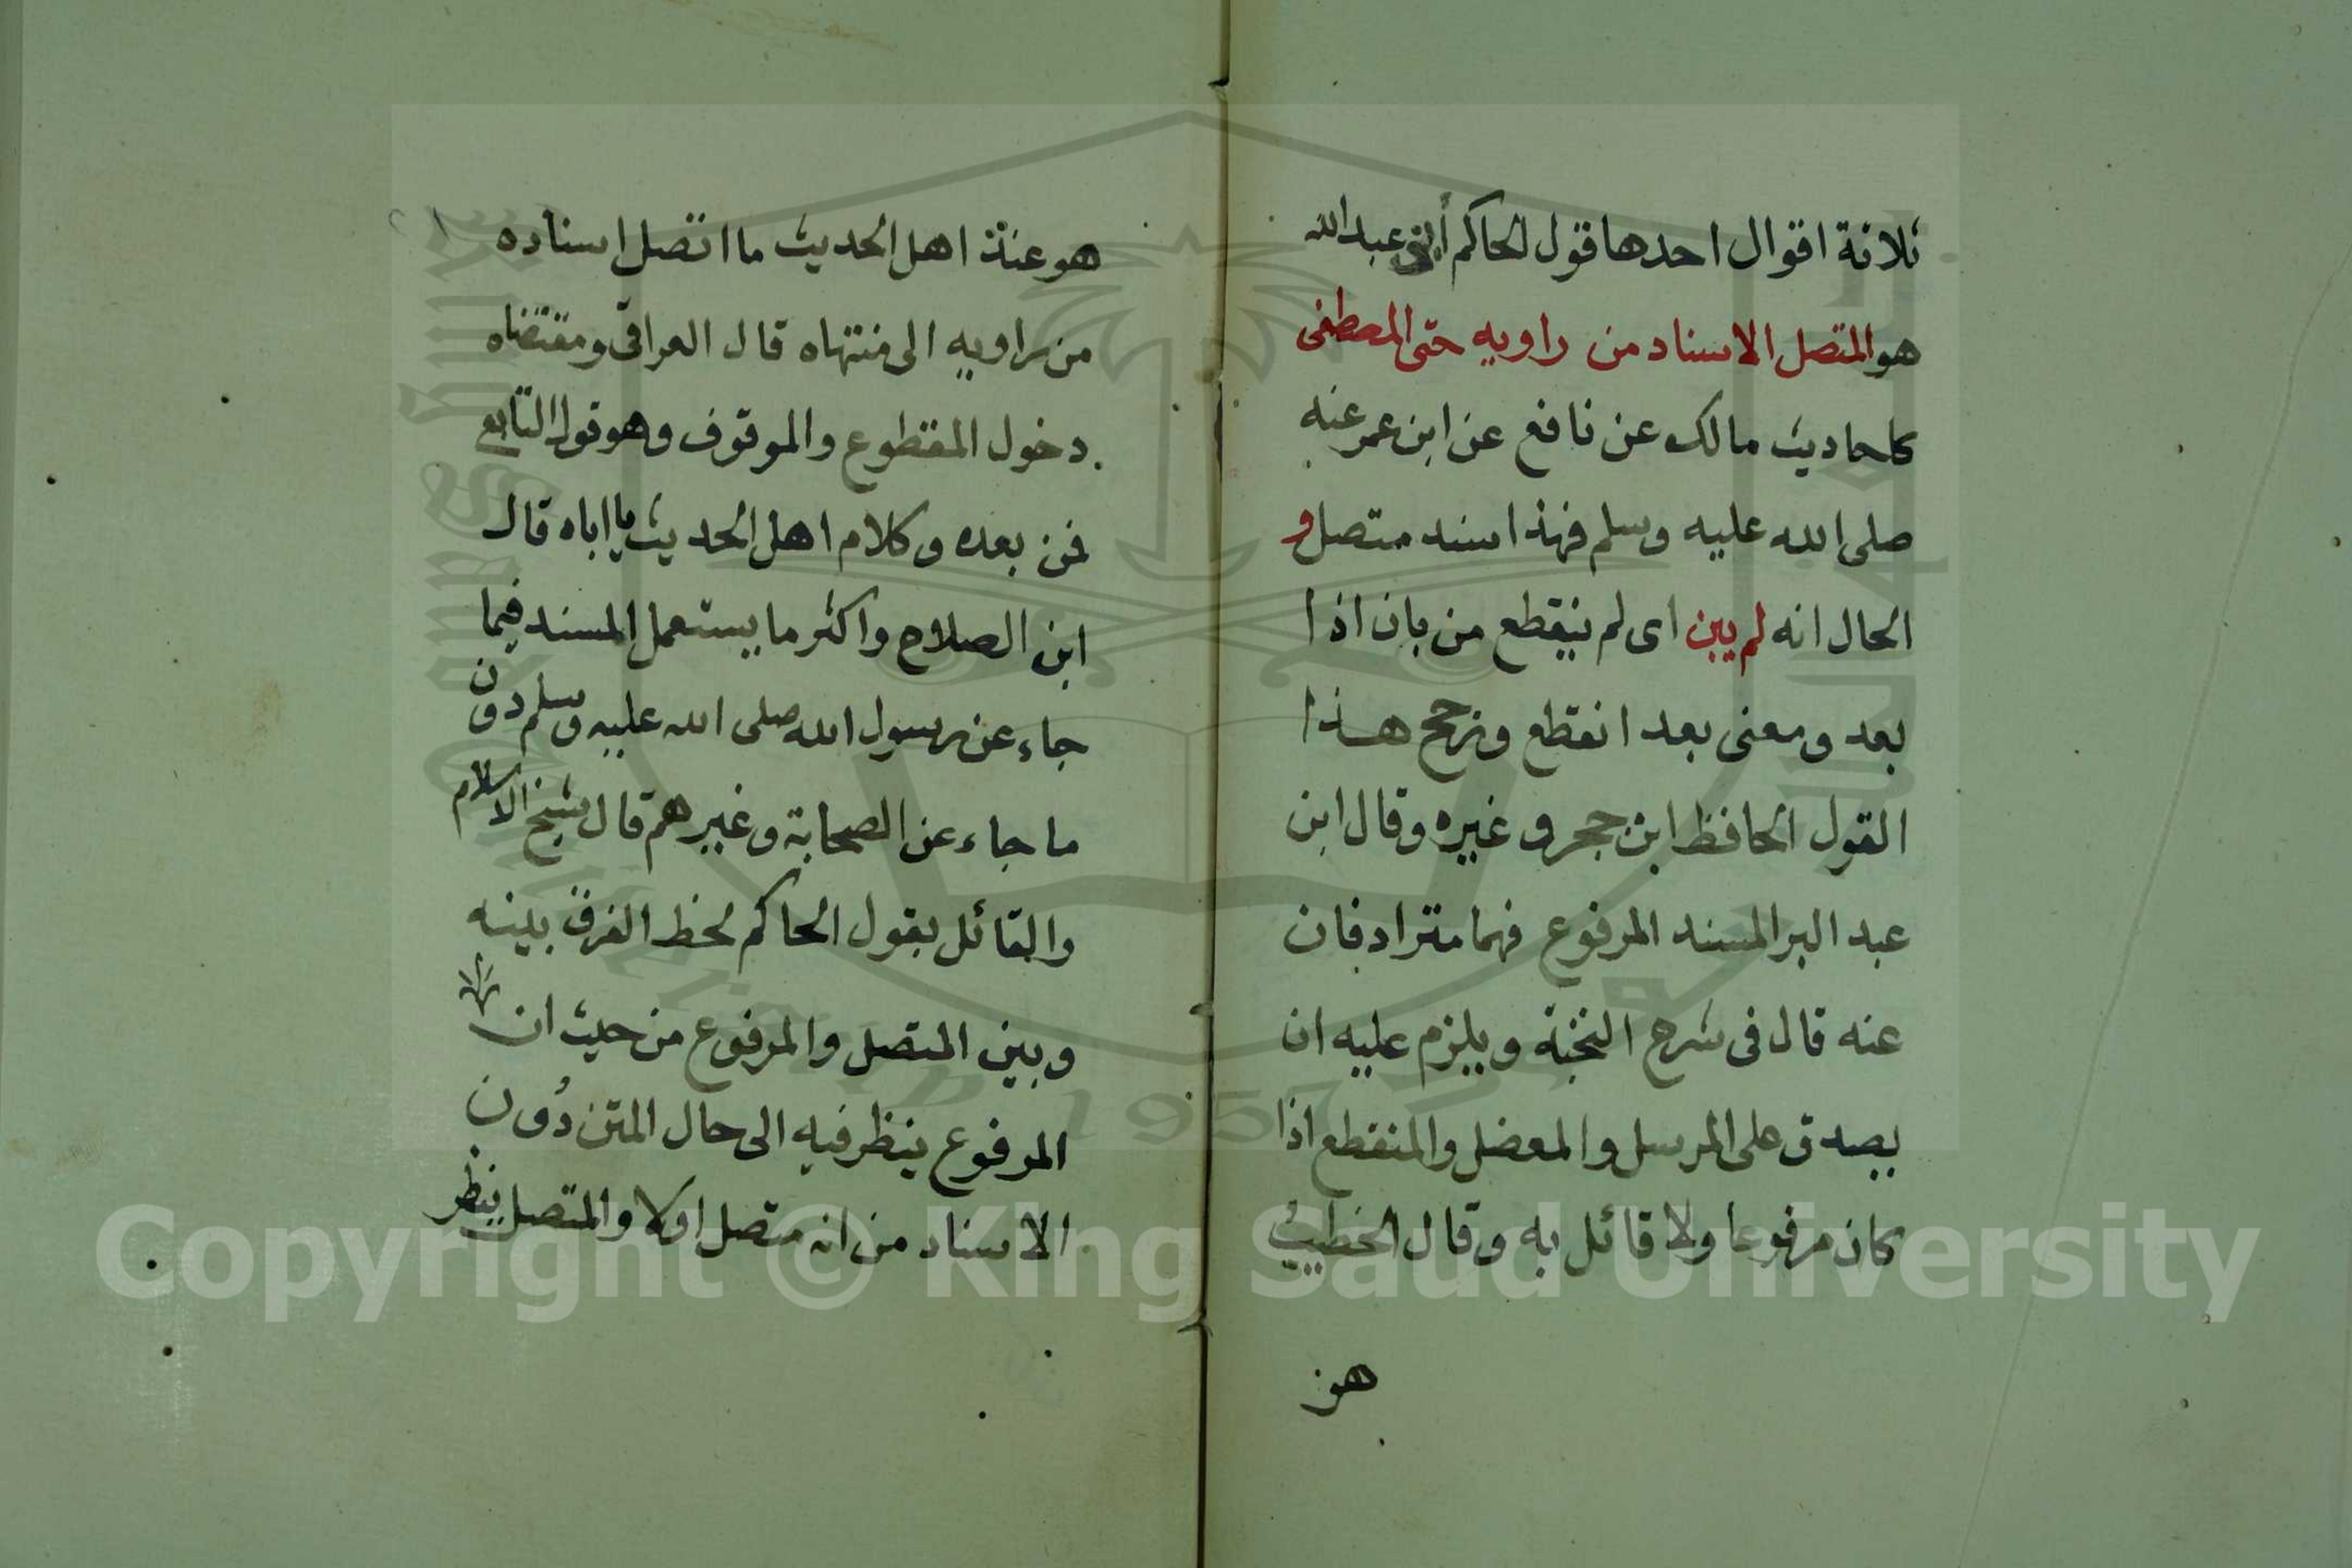 ثلاثة اقوال احدها قول الحاكم أبي عبد الله
هو المتصل الاسناد من راويه حتى المصطفى
كاحاديث مالك عن نافع عن ابن عمر عنه
صلى الله عليه وسلم فهذا مسند متصل و
الحال انه لم يبن اى لم ينقطع من بان اذا
بعد ومعنى بعد انقطع ورجح هذا
القول الحافظ ابن حجر وغيره وقال ابن
عبد البر المسند المرفوع فهما مترادفان
عنه قال فى شرح النخبة ويلزم عليه ان
يصدق على المرسل والمعضل والمنقطع اذا
كان مرفوعا ولا قائل به وقال الخطيب
هو
هو عند اهل الحديث ما اتصل اسناده
من راويه الى منتهاه قال العراقى ومقتضاه
دخول المقطوع والموقوف وهو قول التابع
فمن بعده وكلام اهل الحديث ياباه قال
ابن الصلاح واكثر ما يستعمل المسند فيما
جاء عن رسول الله صلى الله عليه وسلم دون
ما جاء عن الصحابة وغيرهم قال شيخ الاسلام
والقائل بقول الحاكم لحظ الفرق بينه
وبين المتصل والمرفوع من حيث ان
المرفوع ينظر فيه الى حال المتن دُون
الاسناد من انه متصل اولا والمتصل ينظر
Copyright © King Saud University
1957